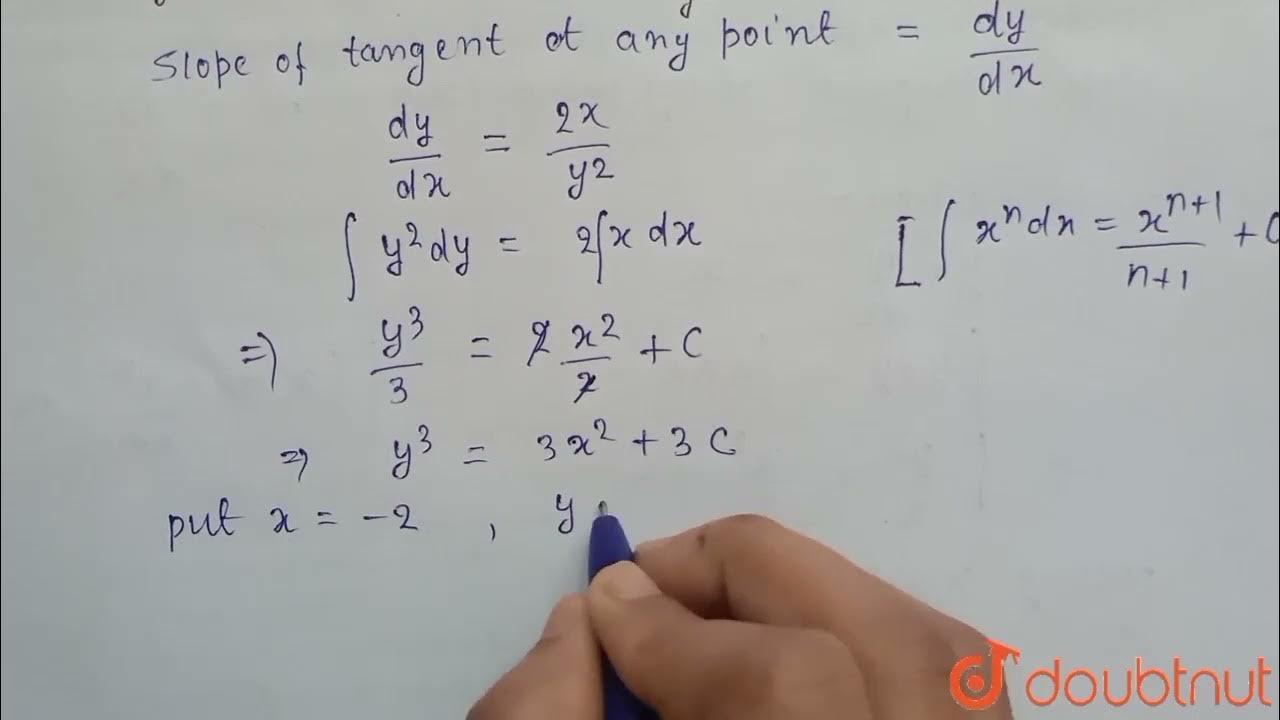 Slope of tangent at any point = dy/dx
dy/dx = 2x/y2
∫ y²dy = 2∫x dx
[ ∫ xⁿ dx = xⁿ⁺¹/n+1 + C
⇒ y³/3 = 2 x²/2 + C
⇒ y³ = 3x² + 3C
put x = -2 , y
doubtnut